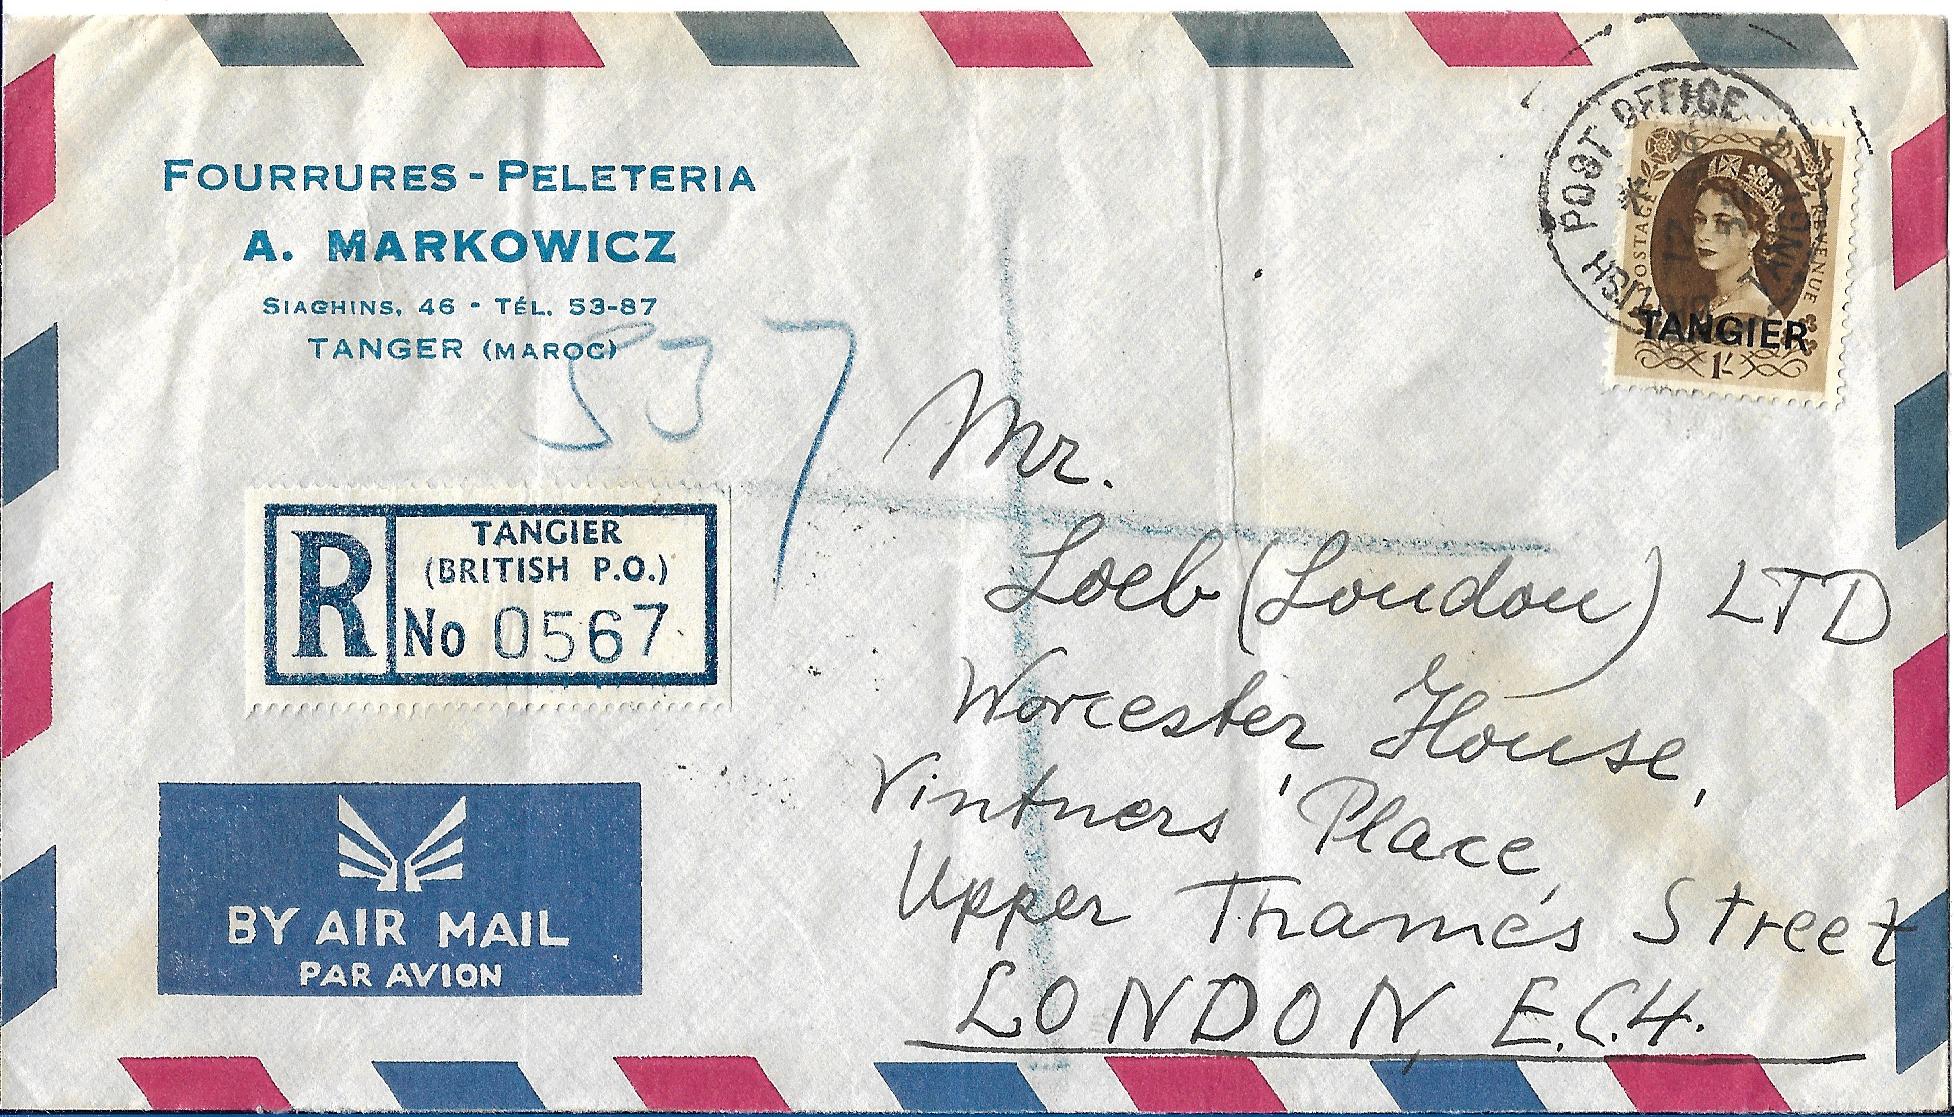 FOURRURES - PELETERIA
A. MARKOWICZ
SIAGHINS, 46 - TÉL. 53-87
TANGER (MAROC)
537
POST OFFICE
POSTAGE
REVENUE
TANGIER
1/-
R
TANGIER
(BRITISH P.O.)
No 0567
BY AIR MAIL
PAR AVION
Mr.
Loeb (London) LTD
Worcester House,
Vintners' Place,
Upper Thames Street
LONDON, E.C.4.